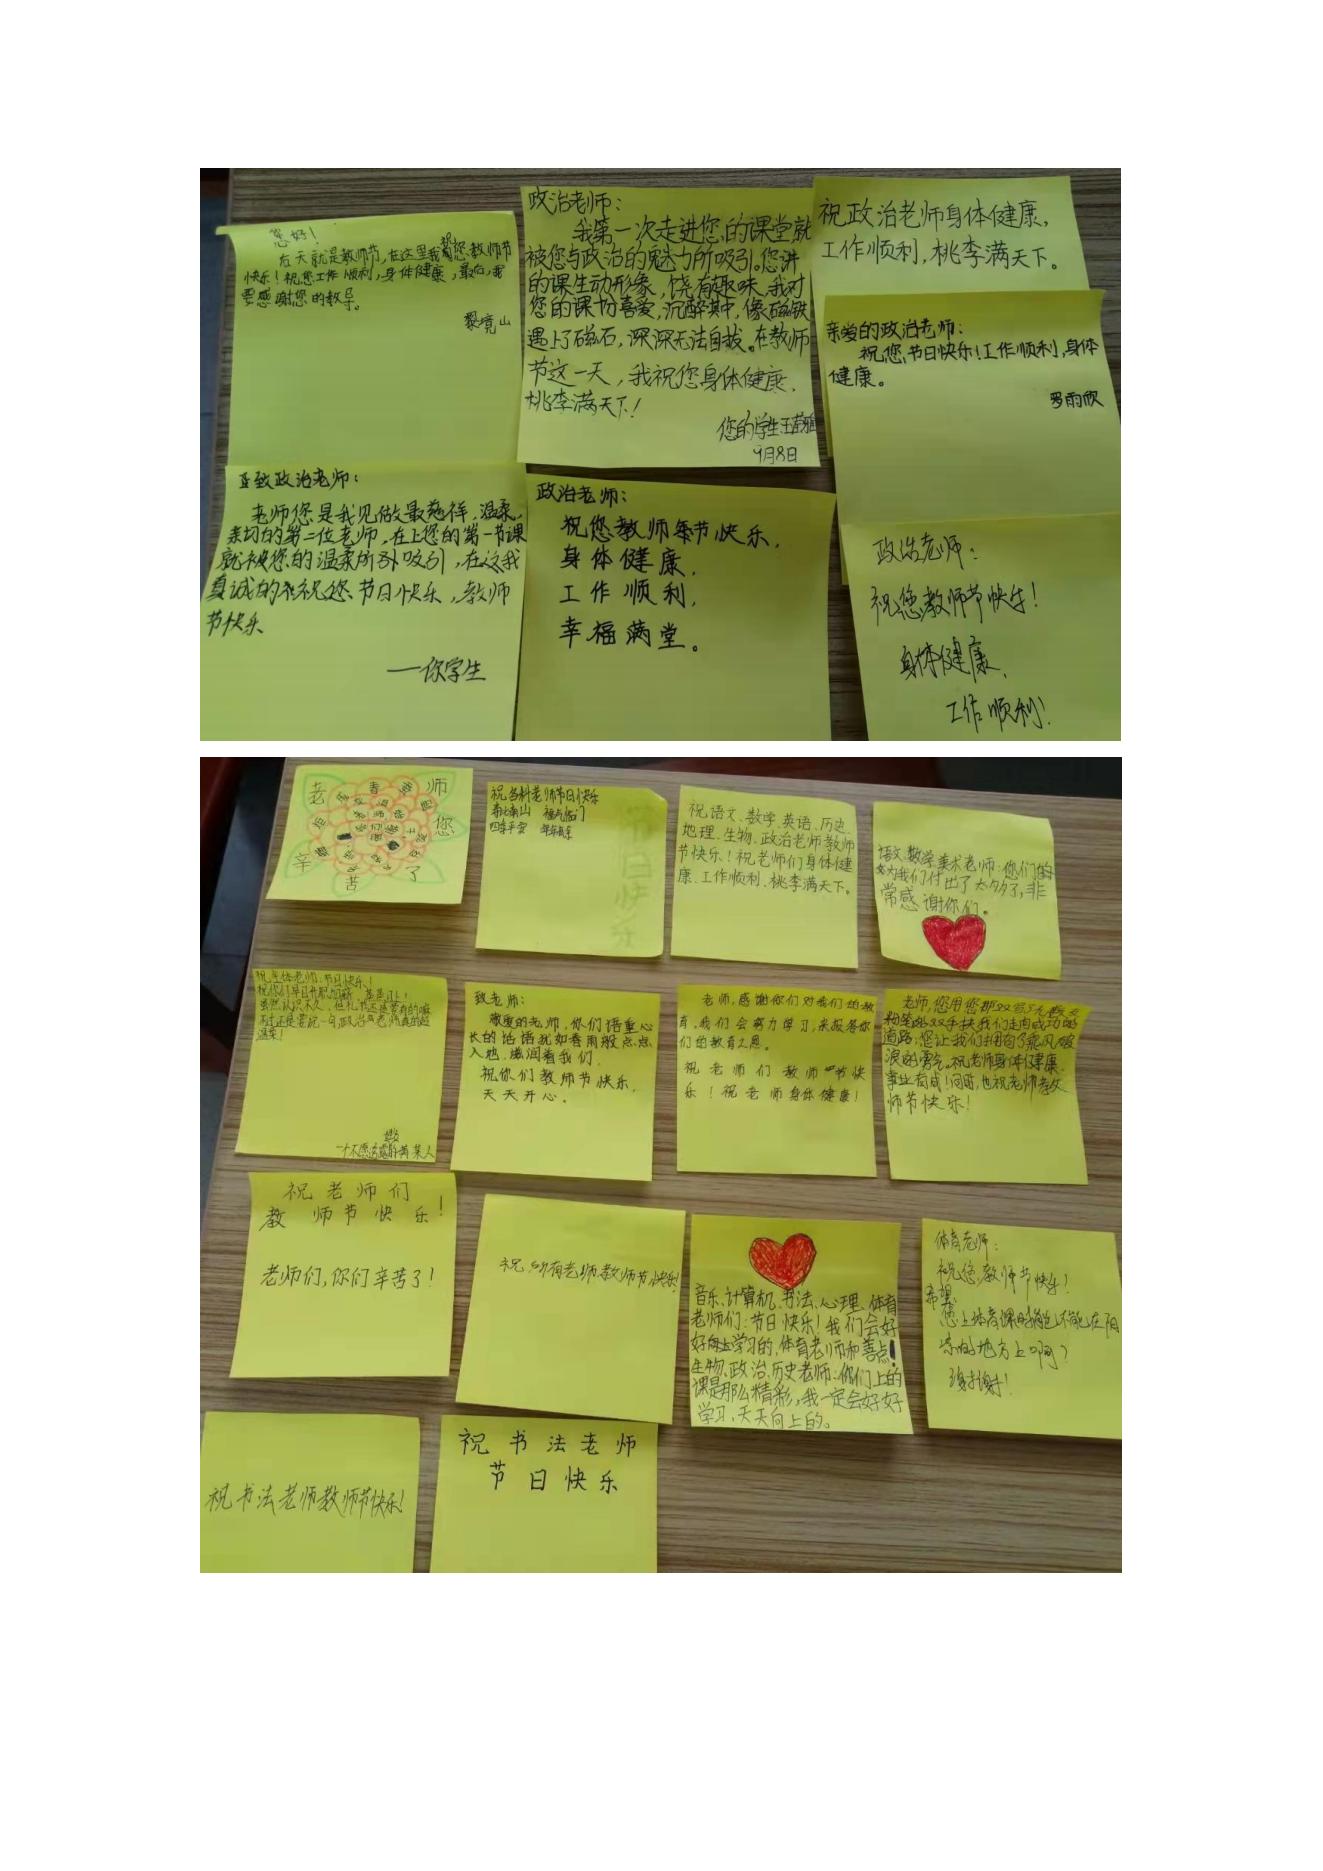 您好!
左天就是教师节,在这里我祝您教师节
快乐!祝您工作顺利,身体健康,最后,我
要感谢您的教导。
政治老师:
我第一次走进您的课堂就
被您与政治的魅力所吸引。您讲
的课生动形象,饶有趣味,我对
您的课十分喜爱,沉醉其中,像磁铁
遇上了磁石,深深无法自拔。在教师
节这一天,我祝您身体健康,
桃李满天下!
您的学生王
9月8日
祝政治老师身体健康,
工作顺利,桃李满天下。
亲爱的政治老师:
祝您节日快乐!工作顺利,身体
健康。
罗雨欣
致政治老师:
老师您是我见做最慈祥,温柔,
亲切的第二位老师,在上您的第一节课
就被您的温柔所吸引,在这我
真诚的祝您节日快乐,教师
节快乐
——你学生
政治老师:
祝您教师节快乐,
身体健康,
工作顺利,
幸福满堂。
政治老师:
祝您教师节快乐!
身体健康,
工作顺利!
老师您
辛苦了
祝各科老师节日快乐
寿比南山 福气临门
四季平安
节日快乐
祝语文、数学、英语、历史、
地理、生物、政治老师教师
节快乐!祝老师们身体健
康、工作顺利、桃李满天下。
语文数学美术老师:您们的
为我们付出了太多了,非
常感谢你们。
祝全体老师:节日快乐!
祝你们早日升职加薪
虽然认识不久,但礼节还是要有的嘛
不过还是要说一句,政治老师真的超
温柔!
一个不愿透露的黄某人
致老师:
敬爱的老师,你们语重心
长的话语犹如春雨般点点
入地,滋润着我们,
祝你们教师节快乐,
天天开心。
老师,感谢你们对我们的教
育,我们会努力学习,来报答你
们的教育之恩。
祝老师们教师节快
乐!祝老师身体健康!
老师,您用您那双写了无数
粉笔的双手扶我们走向成功的
道路;您让我们拥有了乘风破
浪的勇气。祝老师身体健康,
事业有成!同时,也祝老师教
师节快乐!
祝老师们
教师节快乐!
老师们,你们辛苦了!
祝所有老师教师节快乐!
音乐、计算机、书法、心理、体育
老师们:节日快乐!我们会好
好向上学习的,体育老师和善点!
生物、政治、历史老师:你们上的
课是那么精彩,我一定会好好
学习,天天向上的。
体育老师:
祝您教师节快乐!
希望
您上体育课时能不能在阴
凉的地方上啊?
谢谢!
祝书法老师教师节快乐!
祝书法老师
节日快乐